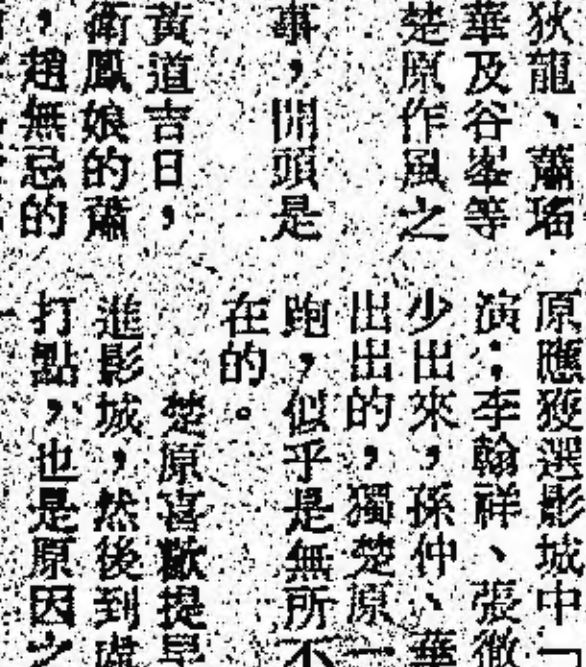 狄龍、蕭瑤
華及谷峯等
楚原作風之
事，開頭是
黃道吉日，
衛鳳娘的蕭
，趙無忌的
原應獲選影城中一
演；李翰祥、張徹
少出來，孫仲、華
出出的，獨楚原一
跑，似乎是無所不
在的。
楚原喜歡提早
進影城，然後到處
打點，也是原因之